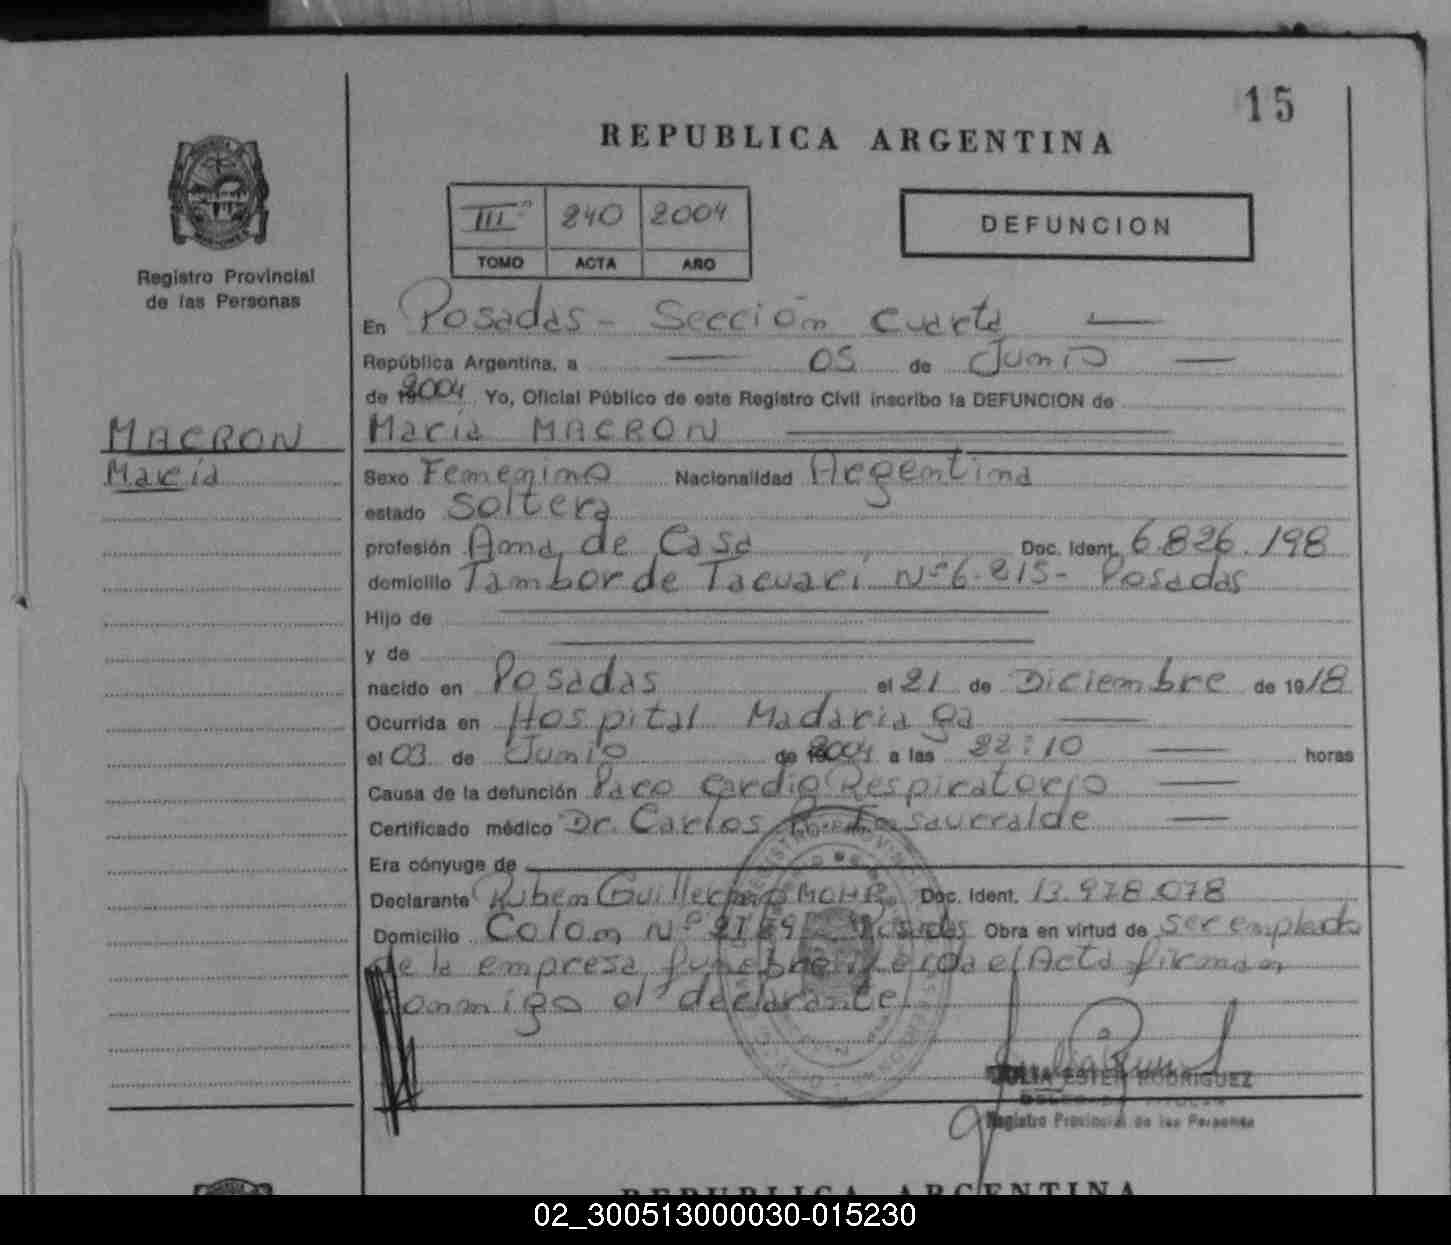 15
REPUBLICA ARGENTINA
III 240 2004
TOMO ACTA AÑO
DEFUNCION
Registro Provincial
de las Personas
En Posadas - Sección Cuarta
República Argentina, a 05 de Junio
de 2004 Yo, Oficial Público de este Registro Civil inscribo la DEFUNCION de
MACRON
María MACRON
María
Sexo Femenino Nacionalidad Argentina
estado Soltera
profesión Ama de Casa Doc. Ident. 6.826.198
domicilio Tambor de Tacuarí Nº 6.215 - Posadas
Hijo de
y de
nacido en Posadas el 21 de Diciembre de 1918
Ocurrida en Hospital Madariaga
el 03 de Junio de 2004 a las 22:10 horas
Causa de la defunción Paro Cardio Respiratorio
Certificado médico Dr. Carlos
Era cónyuge de
Declarante Ruben Guillermo MOHR Doc. Ident. 13.978.078
Domicilio Colon Nº Posadas Obra en virtud de ser empleado
de la empresa el Acta firman
conmigo el declarante
JULIA ESTER RODRIGUEZ
Registro Provincial de las Personas
REPUBLICA ARGENTINA
02_300513000030-015230